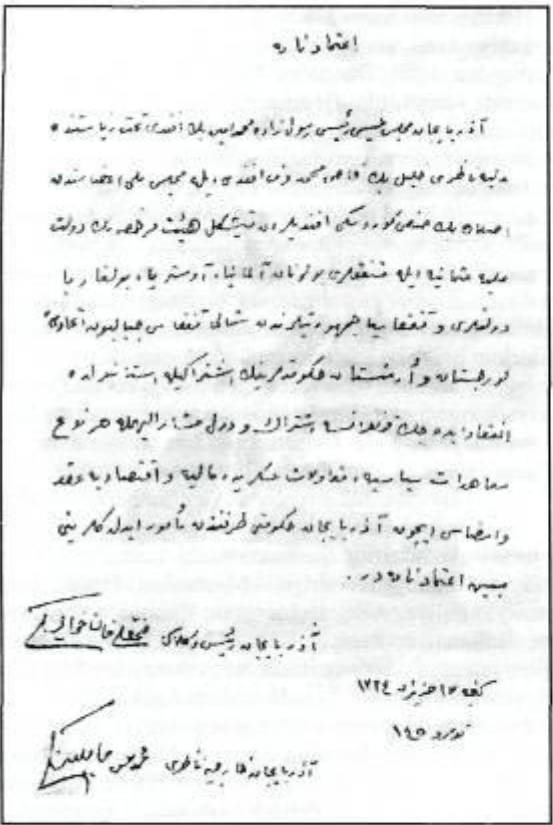 اعتمادنامه
آذربایجان مجلس ملیسی رئیسی رسول زاده محمد امین بك افندی تحت ریاستنده
عدلیه ناظری خلیل بك خاص محمدوف افندی ایله مجلس ملی اعضاسندن
اصلان بك صفی کوردسکی افندیلردن متشکل هیئت مرخصه نك دولت
علیه عثمانیه ایله متفقلری بولونان آلمانیا، آوستریا، بولغاریا
دولتلری و قفقاسیا جمهوریتلرندن شمالی قفقاس جبالیون اتحادی
گورجستان و أرمنستان حکومتلرینك اشتراکیله استانبولده
انعقاد ایده جك قونفرانسه اشتراك و دول مشار الیهمله هر نوع
معاهدات سیاسیه، مقاولات عسکریه، مالیه و اقتصادیه عقد
وامضاسی ایچون آذربایجان حکومتی طرفندن مأمور ایدلدکلرینی
مبین اعتمادنامه در.
آذربایجان رئیس وکلاسی فتحعلی خان خویسکی
گنجه ١٣ حزیران ١٣٣٤
نومرو ١٤٥
آذربایجان خارجیه ناظری محمد حسن حاجینسکی